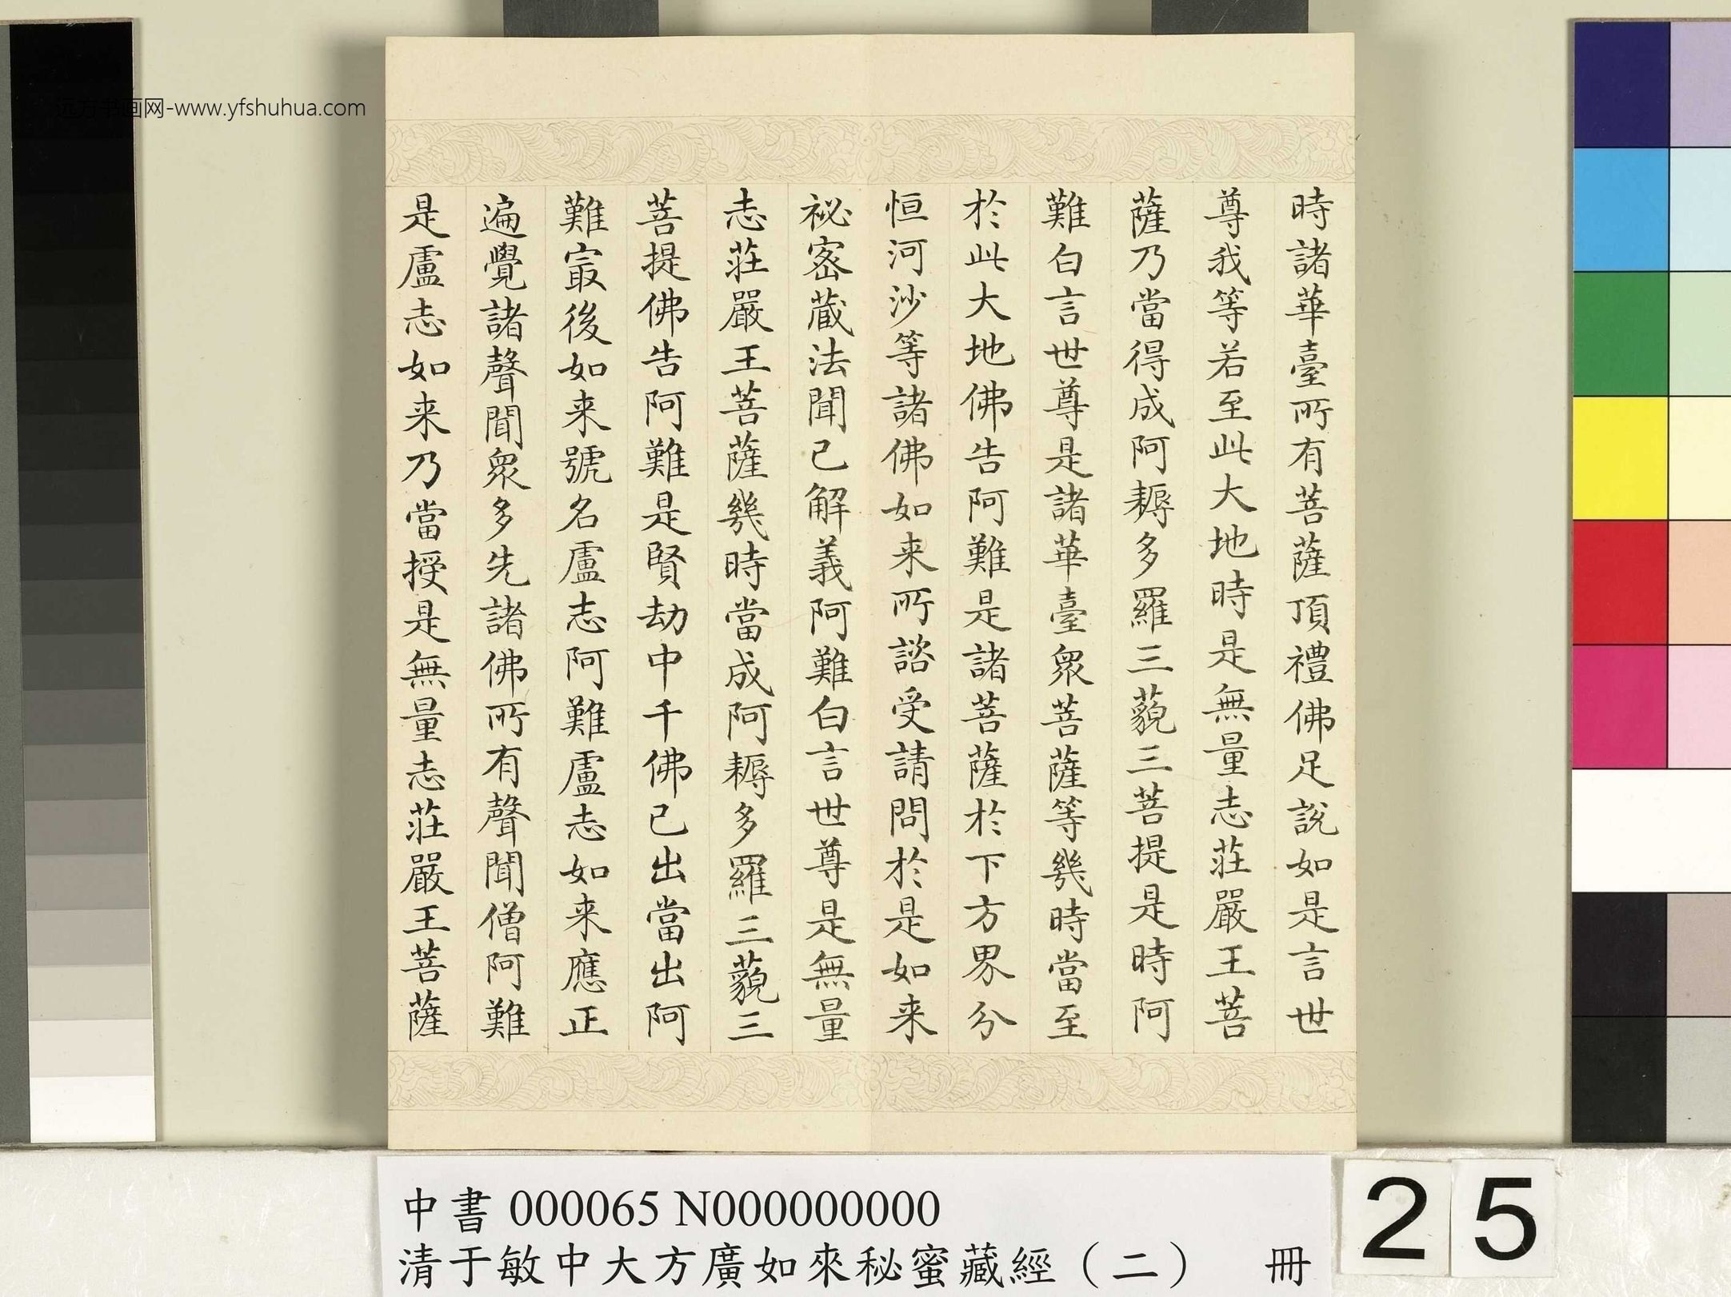 時諸華臺所有菩薩頂禮佛足說如是言世
尊我等若至此大地時是無量志莊嚴王菩
薩乃當得成阿耨多羅三藐三菩提是時阿
難白言世尊是諸華臺眾菩薩等幾時當至
於此大地佛告阿難是諸菩薩於下方界分
恒河沙等諸佛如来所諮受請問於是如来
祕密蔵法聞已解義阿難白言世尊是無量
志莊嚴王菩薩幾時當成阿耨多羅三藐三
菩提佛告阿難是賢劫中千佛已出當出阿
難冣後如来號名盧志阿難盧志如来應正
遍覺諸聲聞眾多先諸佛所有聲聞僧阿難
是盧志如来乃當授是無量志莊嚴王菩薩
远方书画网-www.yfshuhua.com
中書 000065 N000000000
清于敏中大方廣如來秘蜜藏經（二） 冊
25